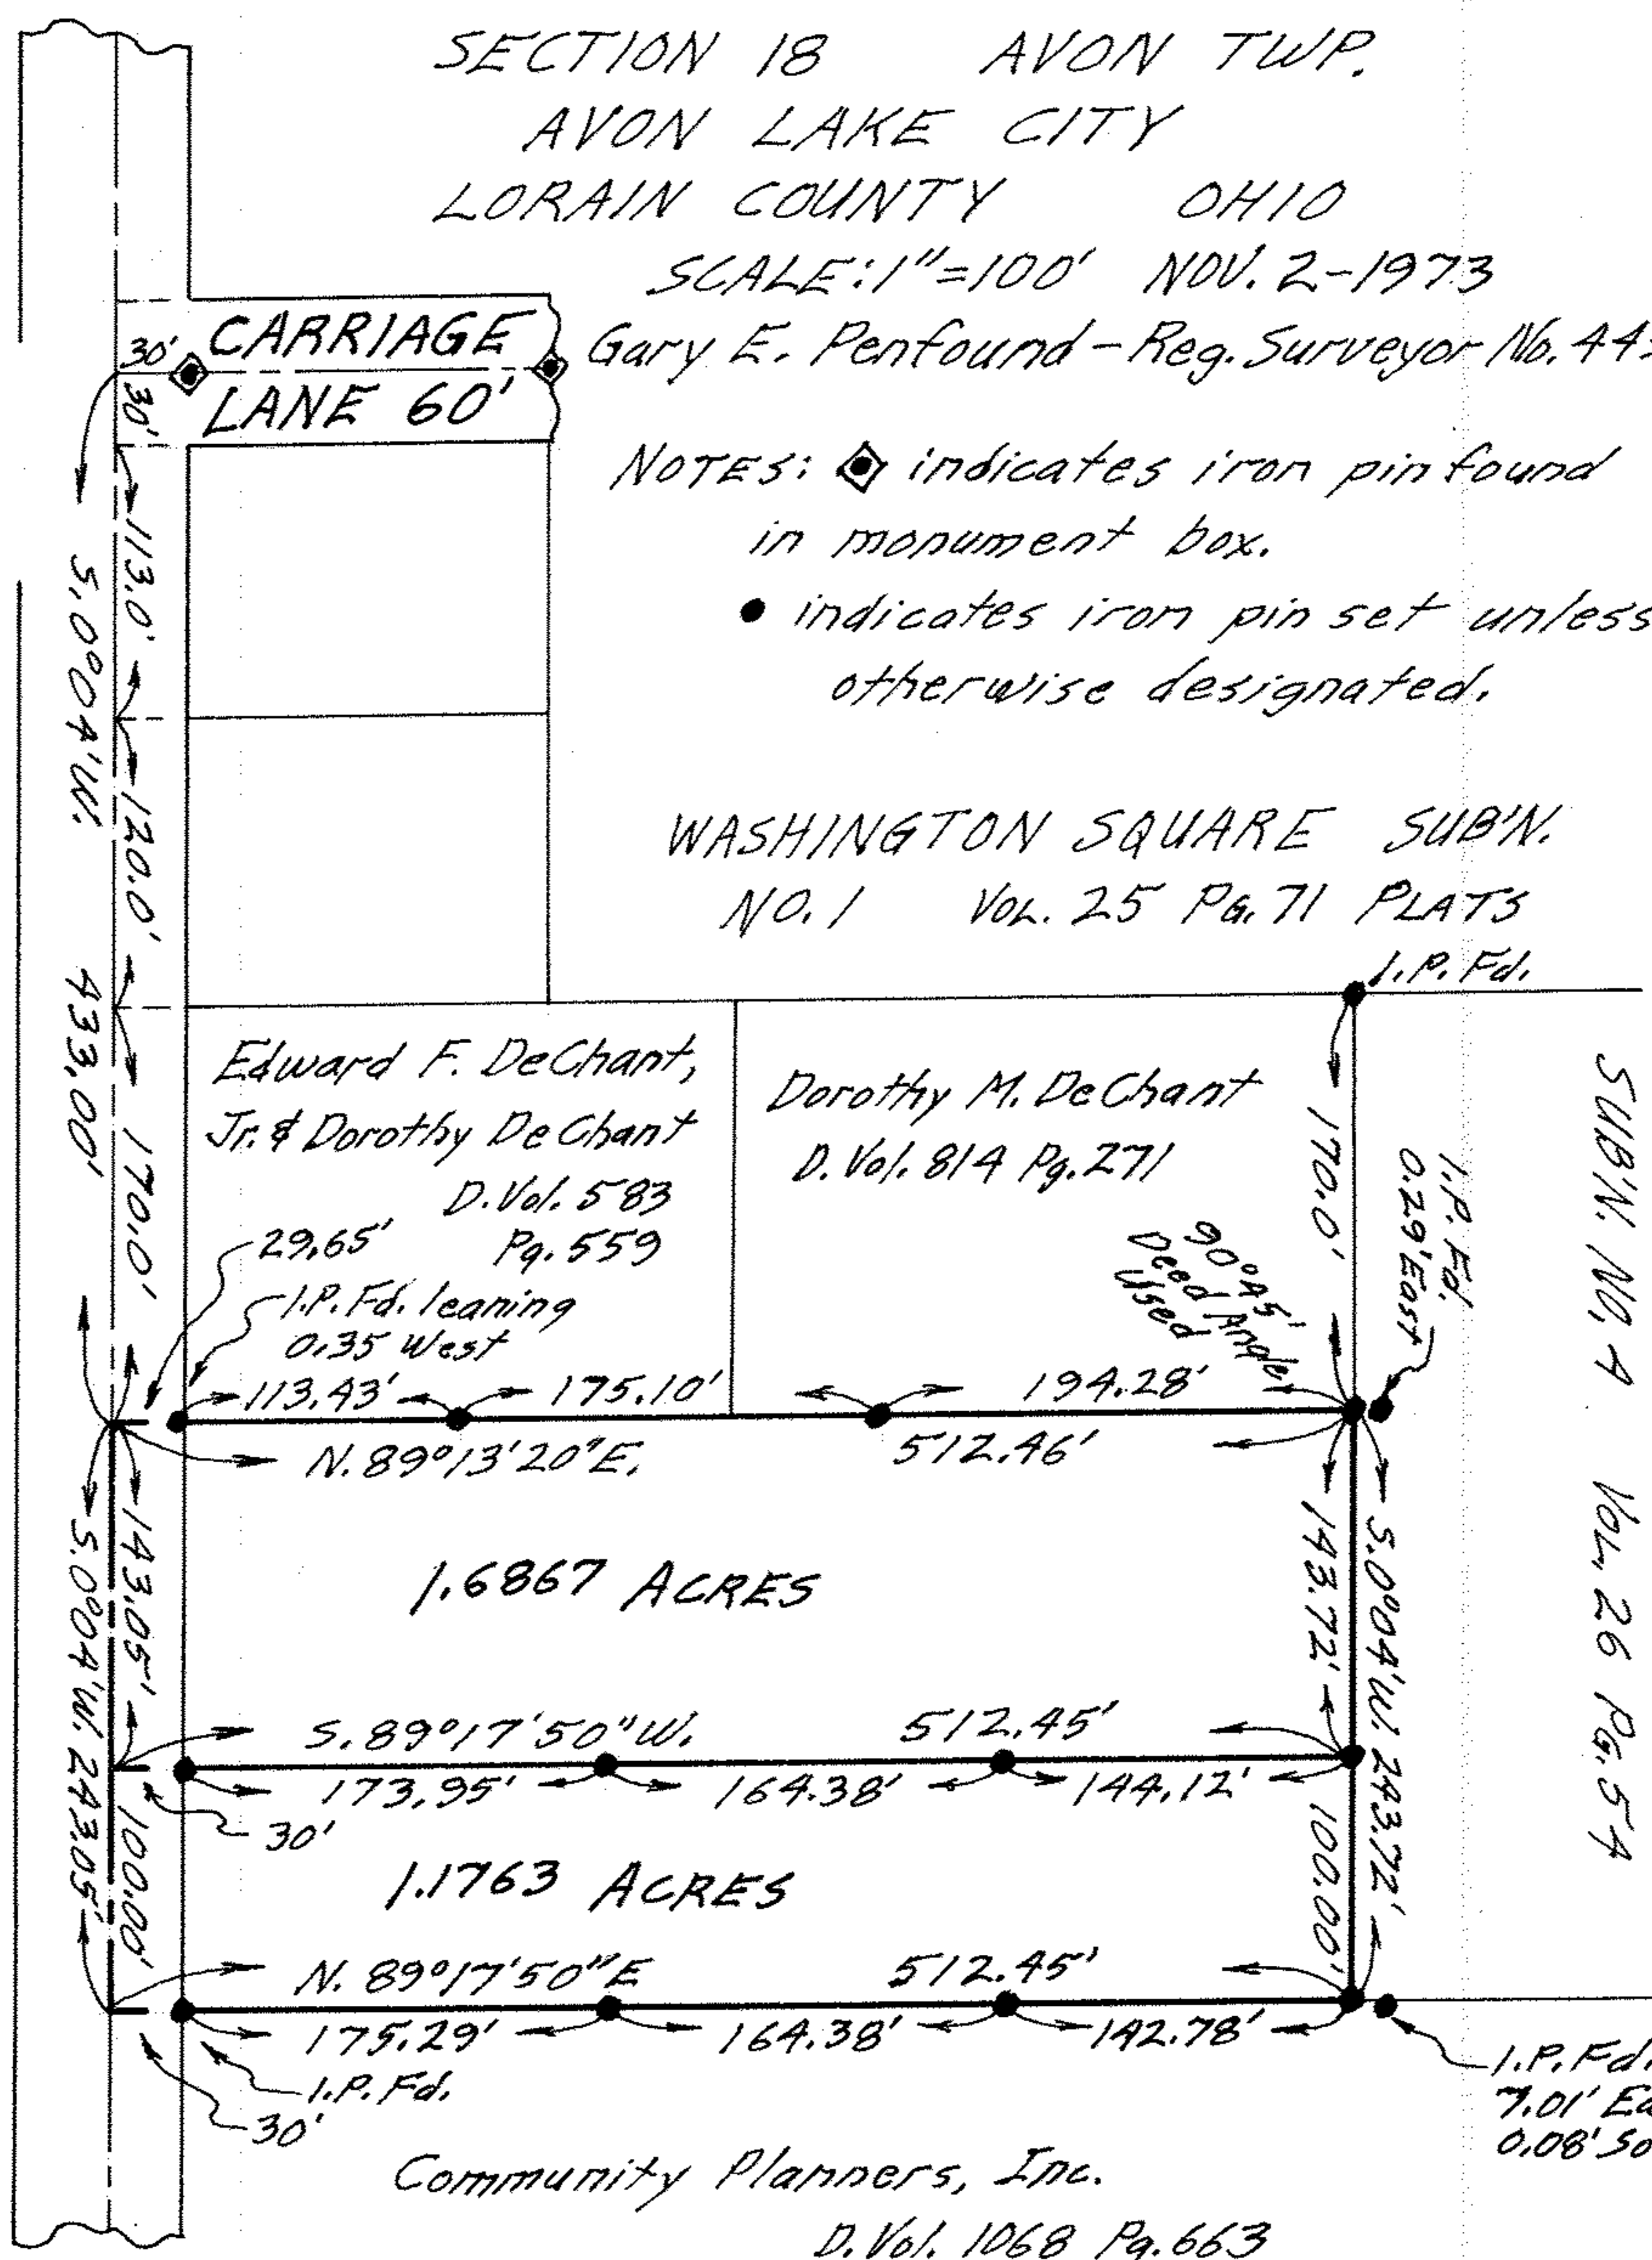 SECTION 18 AVON TWP.
AVON LAKE CITY
LORAIN COUNTY OHIO
SCALE: 1"=100' NOV. 2-1973
Gary E. Penfound - Reg. Surveyor No.
CARRIAGE
LANE 60'
30'
30'
NOTES: indicates iron pin found
in monument box.
• indicates iron pin set unless
otherwise designated.
113.0'
S. 0°04'W. 433.00'
120.0'
WASHINGTON SQUARE SUB'N.
NO. 1 VOL. 25 PG. 71 PLATS
I.P. Fd.
170.0'
Edward F. DeChant,
Jr. & Dorothy DeChant
D. Vol. 583
Pg. 559
Dorothy M. DeChant
D. Vol. 814 Pg. 271
170.0'
I.P. Fd.
0.29' East
SUB'N. NO. 4 VOL. 26 PG. 54
29.65'
I.P. Fd. leaning
0.35 West
90°45'
Deed Angle
Used
113.43' 175.10' 194.28'
N. 89°13'20"E. 512.46'
143.05'
S. 0°04'W. 243.05'
1.6867 ACRES
143.72'
S. 0°04'W. 243.72'
S. 89°17'50"W. 512.45'
173.95' 164.38' 144.12'
30'
100.00'
1.1763 ACRES
100.00'
N. 89°17'50"E 512.45'
175.29' 164.38' 142.78'
I.P. Fd.
30'
I.P. Fd.
7.01'
0.08'
Community Planners, Inc.
D. Vol. 1068 Pg. 663